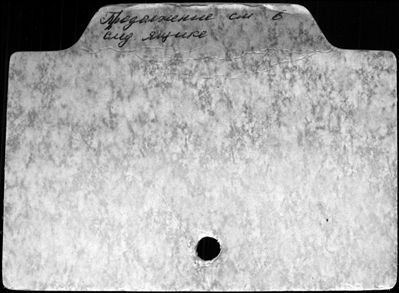 Продолжение см. в
след. ящике